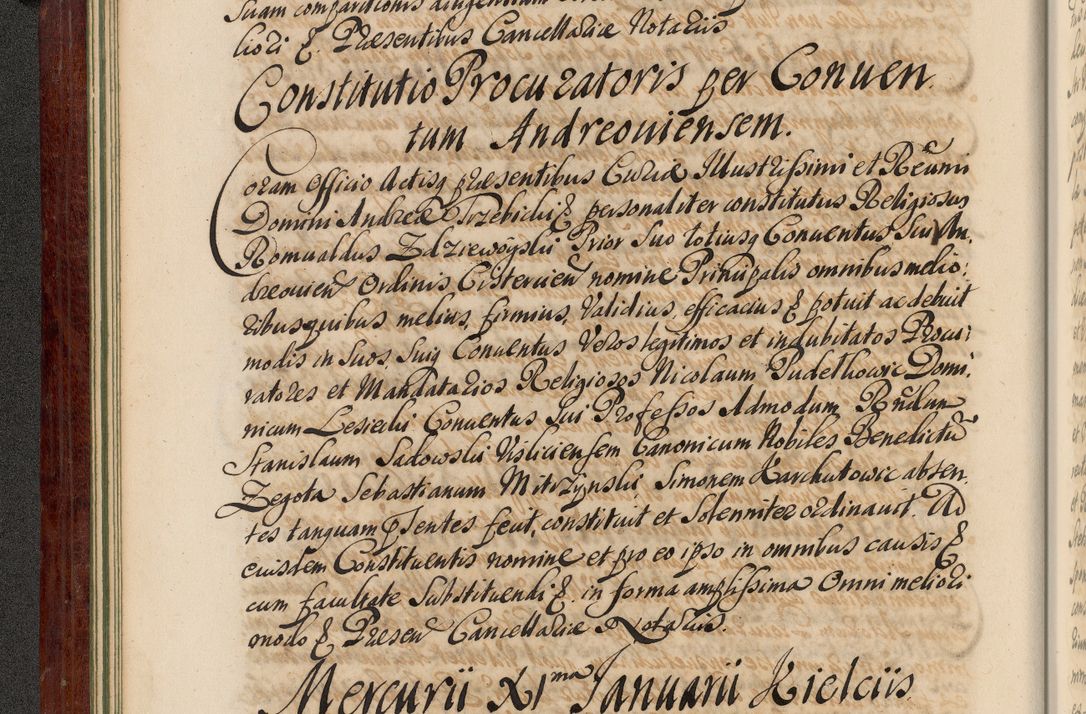 liori &. Praesentibus Cancellariae Notariis
Constitutio Procuratoris per Conuen
tum Andreouiensem.
Coram Officio Actisq praesentibus Curiae Illustrissimi et Reumi
Domini Andreae Trzebicki &. personaliter constitutus Religiosus
Romualdus Zdziewoyski Prior Suo totiusq Conuentus Sui An,
dreouien Ordinis Cistercien nomine Principalis omnibus melio,
ribus quibus melius, firmius, Validius, efficacius & potuit ac debuit
modis in Suos, Suiq Conuentus Veros legitimos et indubitatos Procu,
ratores et Mandatarios Religiosos Nicolaum Pudełkowic Domi,
nicum Lesiecki Conuentus Sui Professos Admodum Rndum
Stanislaum Sadowski Visliciensem Canonicum Nobiles Benedictu
Zegota Sebastianum Mitrzynski Simonem Karchutowic absen,
tes tanquam psentes fecit, constituit et Solenniter ordinauit. Ad
eiusdem Constituentis nomine et pro eo ipso in omnibus causis &
cum facultate Substituendi &. in forma amplissima Omni meliori
modo & Praesen Cancellariae Notariis.
Mercurii XIma Ianuarii Kielciis